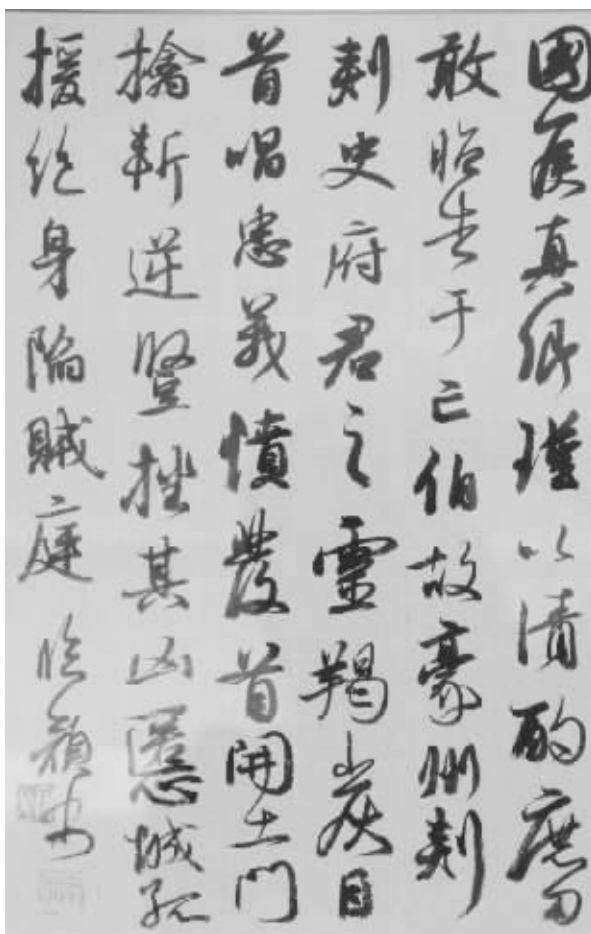 國侯真卿瑾以清酌庶
敢昭告于亡伯故豪州刺
刺史府君之靈羯
首唱忠義憤發首開土門
擒斬逆豎挫其凶慝城孤
援絶身陷賊庭 臨顔